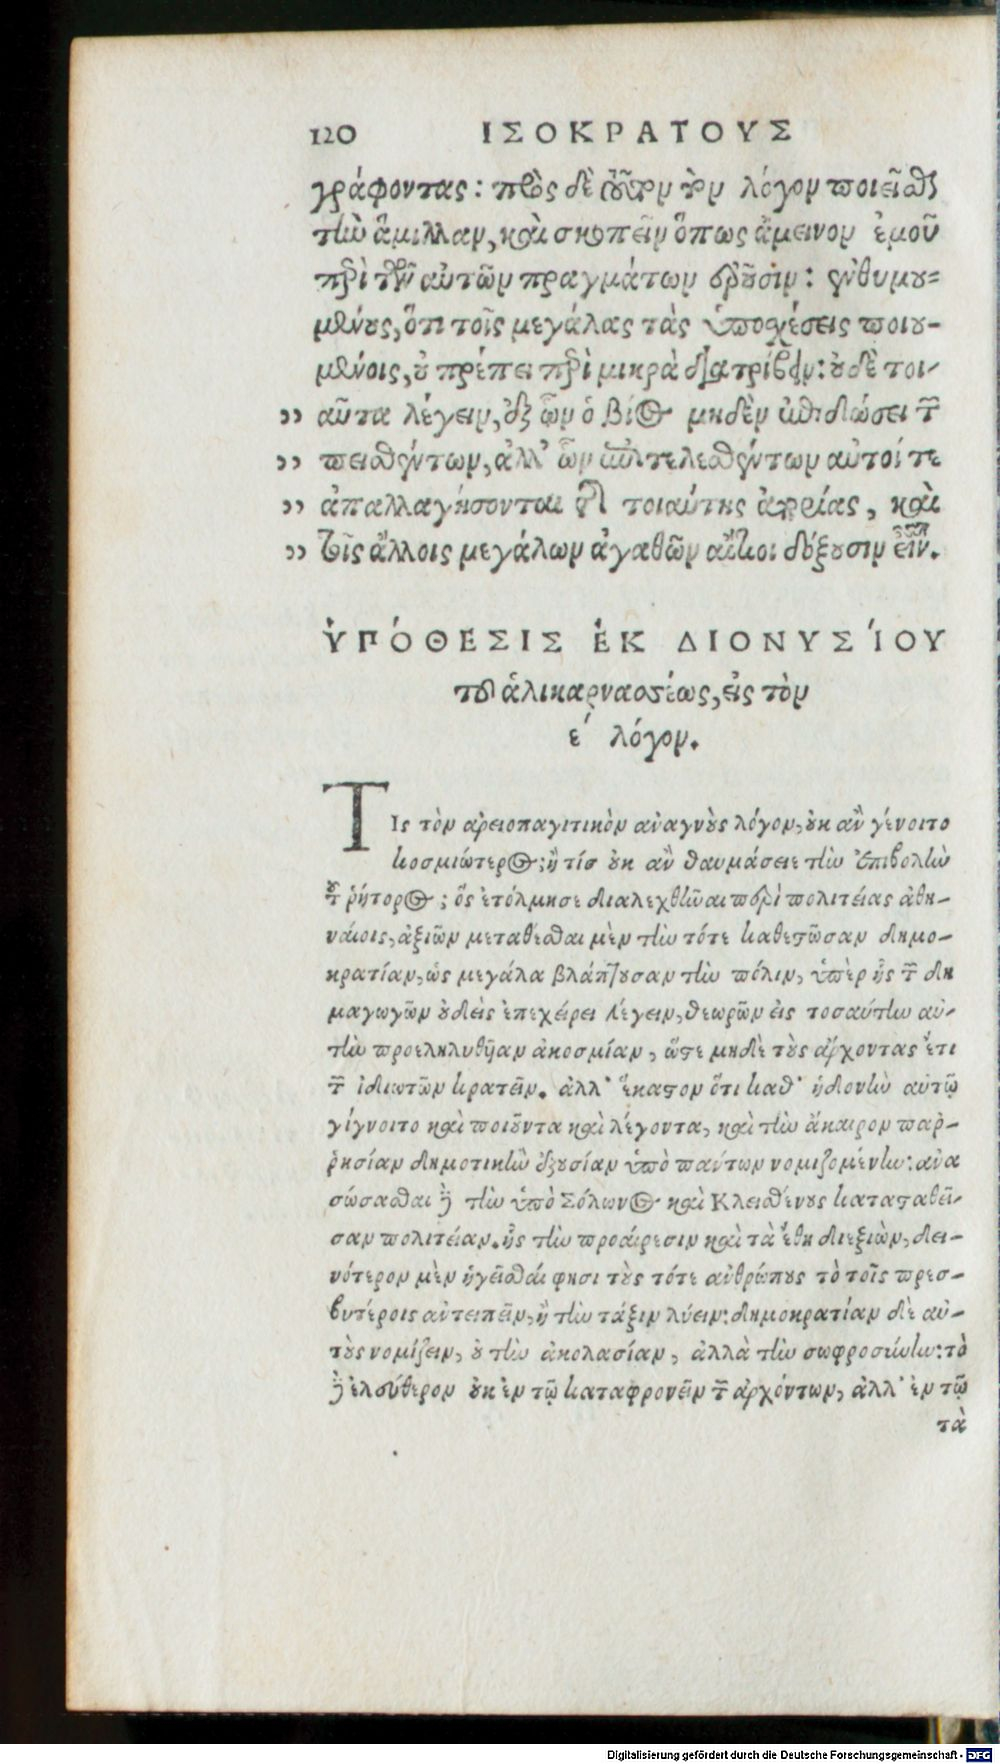 120 ΙΣΟΚΡΑΤΟΥΣ
γράφοντας: πρὸς δὲ τοῦτον τὸν λόγον ποιεῖσθαι
τὴν ἅμιλλαν, καὶ σκοπεῖν ὅπως ἄμεινον ἐμοῦ
περὶ τῶν αὐτῶν πραγμάτων ἐροῦσιν: ἐνθυμου=
μένους, ὅτι τοῖς μεγάλας τὰς ὑποσχέσεις ποιου-
μένοις, οὐ πρέπει περὶ μικρὰ διατρίβειν: οὐδὲ τοι-
,, αῦτα λέγειν, ἐξ ὧν ὁ βίος μηδὲν ἐπιδώσει τῶν
,, πεισθέντων, ἀλλ' ὧν ἐπιτελεσθέντων αὐτοί τε
,, ἀπαλλαγήσονται τῆς τοιαύτης ἀπορίας, καὶ
,, τοῖς ἄλλοις μεγάλων ἀγαθῶν αἴτιοι δόξουσιν εἶναι.
ὙΠΌΘΕΣΙΣ ἘΚ ΔΙΟΝΥΣΊΟΥ
τοῦ ἁλικαρνασέως, εἰς τὸν
ε΄ λόγον.
ΤΙς τὸν ἀρειοπαγιτικὸν ἀναγνοὺς λόγον, οὐκ ἂν γένοιτο
κοσμιώτερος; ἢ τίσ οὐκ ἂν θαυμάσειε τὴν ἐπιβολὴν
τοῦ ῥήτορος; ὃς ἐτόλμησε διαλεχθῆναι περὶ πολιτείας ἀθη-
ναίοις, ἀξιῶν μεταθέσθαι μὲν τὴν τότε καθεστῶσαν δημο-
κρατίαν, ὡς μεγάλα βλάπτουσαν τὴν πόλιν, ὑπὲρ ἧς τῶν δη
μαγωγῶν οὐδεὶς ἐπεχείρει λέγειν, θεωρῶν εἰς τοσαύτην αὐ-
τὴν προεληλυθῆαν ἀκοσμίαν, ὥστε μηδὲ τοὺς ἄρχοντας ἔτι
τῶν ἰδιωτῶν κρατεῖν. ἀλλ' ἕκαστον ὅτι καθ' ἡδονὴν αὐτῷ
γίγνοιτο καὶ ποιοῦντα καὶ λέγοντα, καὶ τὴν ἄκαιρον παρ-
ρησίαν δημοτικὴν ἐξουσίαν ὑπὸ πάντων νομιζομένην: ἀνα
σώσασθαι δὲ τὴν ὑπὸ Σόλωνος καὶ Κλεισθένους κατασταθεῖ-
σαν πολιτείαν. ἧς τὴν προαίρεσιν καὶ τὰ ἔθη διεξιὼν, δει-
νότερον μὲν ἡγεῖσθαί φησι τοὺς τότε ἀνθρώπους τὸ τοῖς πρεσ-
βυτέροις ἀντειπεῖν, ἢ τὴν τάξιν λύειν: δημοκρατίαν δὲ αὐ-
τοὺς νομίζειν, οὐ τὴν ἀκολασίαν, ἀλλὰ τὴν σωφροσύνην: τὸ
δὲ ἐλεύθερον οὐκ ἐν τῷ καταφρονεῖν τῶν ἀρχόντων, ἀλλ' ἐν τῷ
τὰ
Digitalisierung gefördert durch die Deutsche Forschungsgemeinschaft - DFG